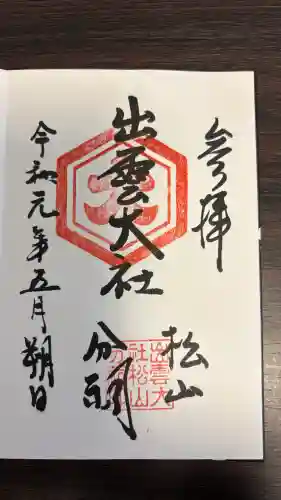 参拝
松山
出雲大社
分祠
令和元年五月朔日
出雲大
社松山
分祠